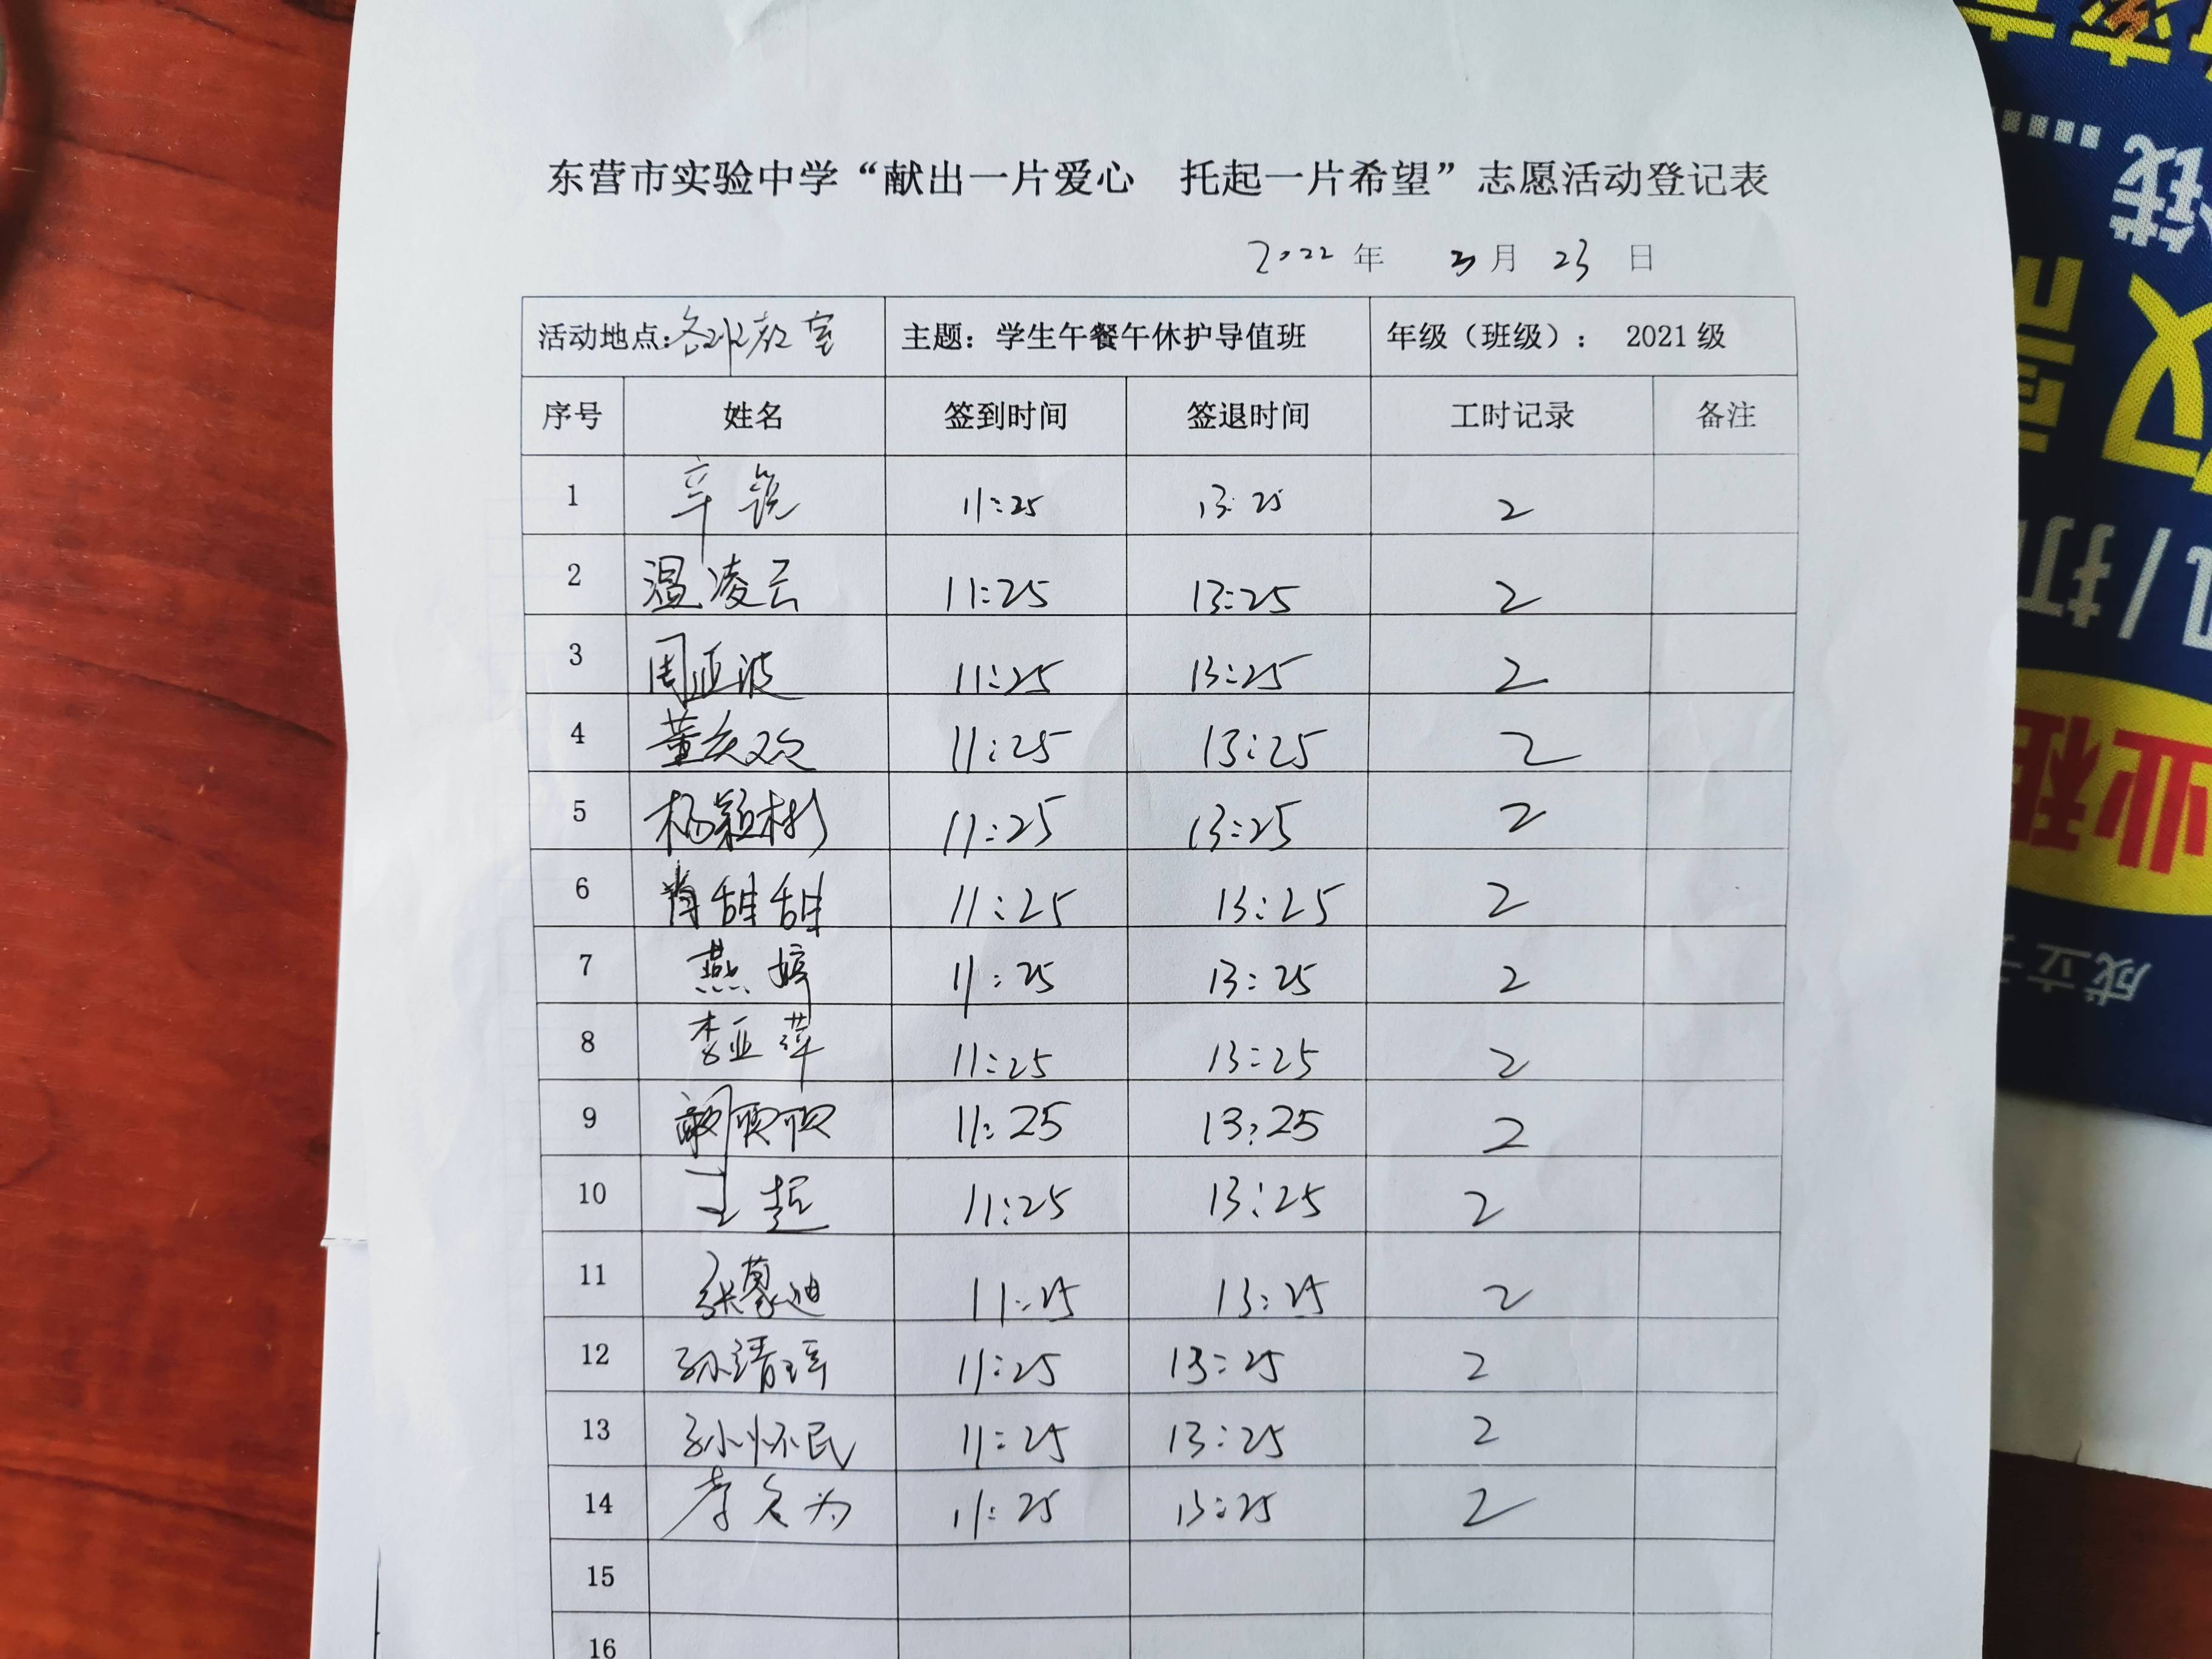 东营市实验中学“献出一片爱心 托起一片希望”志愿活动登记表
2022 年 3 月 23 日
活动地点:各班教室 主题：学生午餐午休护导值班 年级（班级）： 2021级
序号 姓名 签到时间 签退时间 工时记录 备注
1 辛锐 11:25 13:25 2
2 温凌云 11:25 13:25 2
3 周亚波 11:25 13:25 2
4 董庆欢 11:25 13:25 2
5 杨颖彬 11:25 13:25 2
6 肖甜甜 11:25 13:25 2
7 燕婷 11:25 13:25 2
8 李亚萍 11:25 13:25 2
9 11:25 13:25 2
10 王超 11:25 13:25 2
11 张蒙迪 11:25 13:25 2
12 孙靖瑶 11:25 13:25 2
13 孙怀民 11:25 13:25 2
14 李名为 11:25 13:25 2
15
16
钱
/打
业租
成立